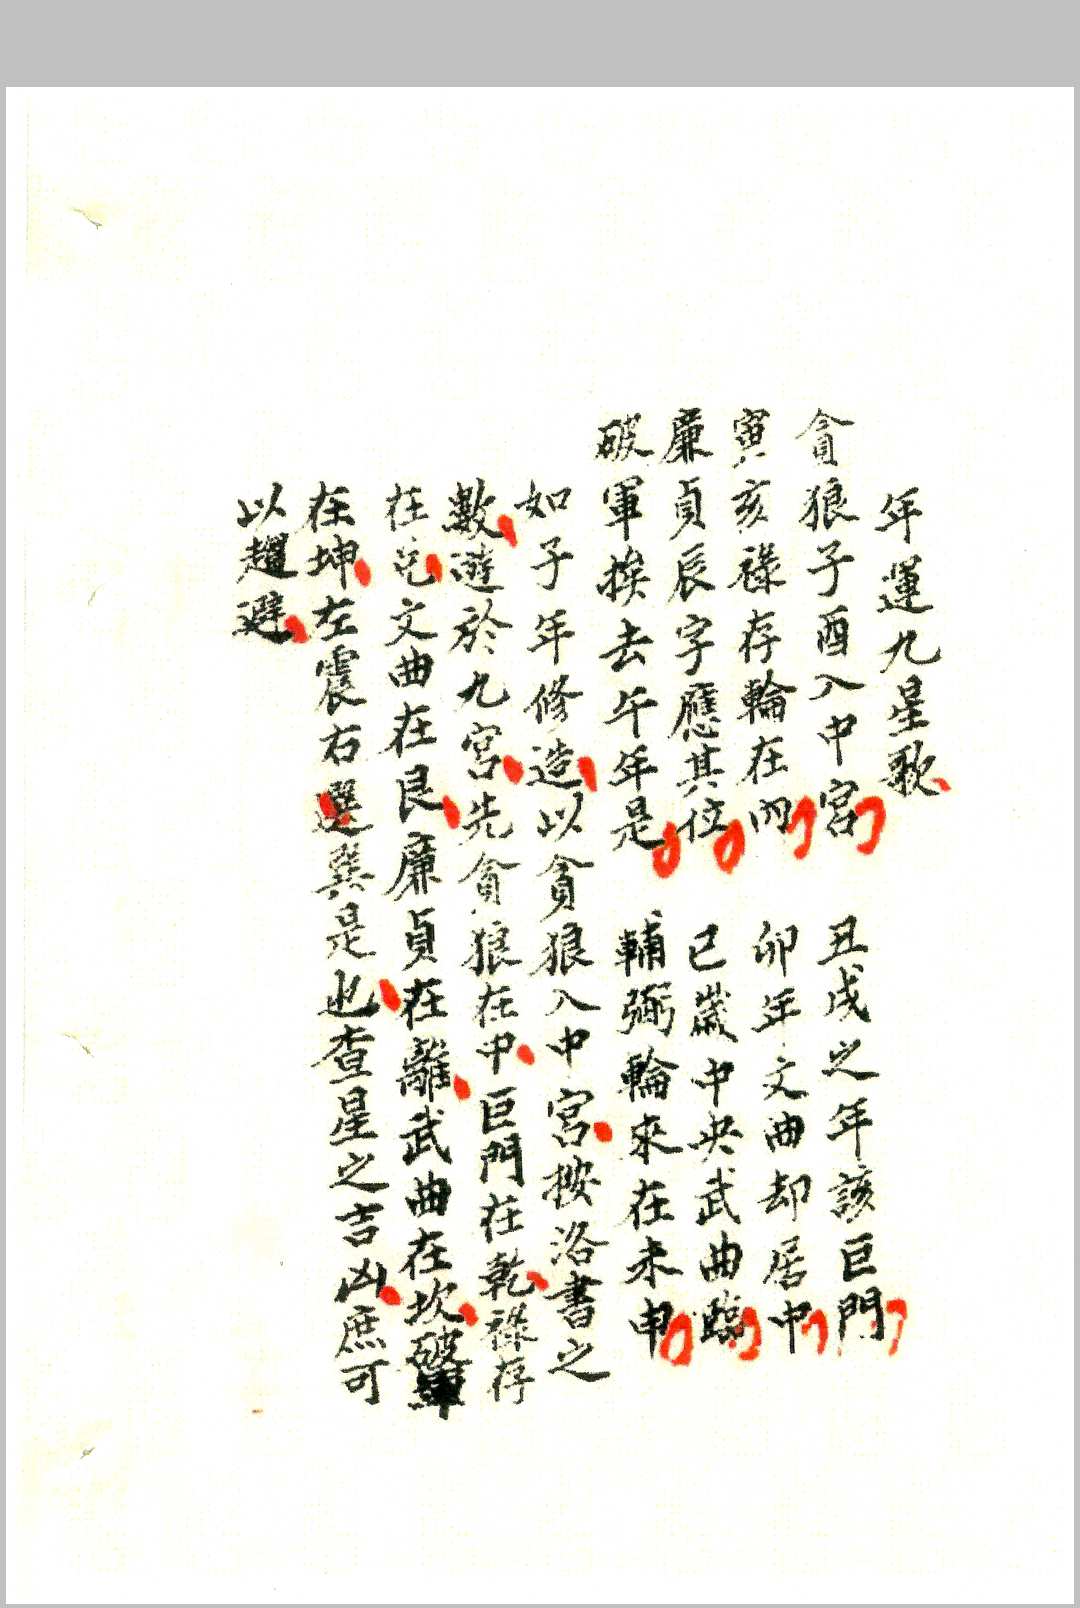 年運九星歌
貪狼子酉入中宮 丑戌之年該巨門
寅亥祿存輪在內 卯年文曲却居中
廉貞辰字應其位 已歲中央武曲臨
破軍挨去午年是 輔弼輪來在未申
如子年修造以貪狼入中宮按洛書之
數遊於九宮先貪狼在中巨門在乾祿存
在兌文曲在艮廉貞在離武曲在坎破軍
在坤左震右巽是也查星之吉凶庶可
以趨避